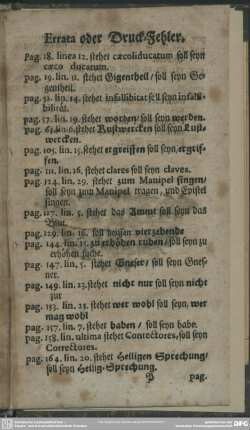 Errata oder Druck-Fehler.
Pag. 18. linea 12. stehet cæcoliducatum soll seyn
cæco ducatum.
pag. 19. lin. 11. stehet Gigentheil / soll seyn Ge-
gentheil.
pag. 51. lin. 14. stehet infallibitat soll seyn infalli-
bilität.
pag. 57. lin. 19. stehet worden / soll seyn werden.
pag. 61. lin. 6. stehet Rustwercken soll seyn Lust-
wercken.
pag. 105. lin. 15. stehet ergreiffen soll seyn, ergrif-
fen.
pag. 111. lin. 16. stehet clares soll seyn claves.
pag. 124. lin. 29. stehet zum Manipel singen /
soll seyn zum Manipel tragen, und Epistel
singen.
pag. 127. lin. 5. stehet das Ammt soll seyn das
Blut.
pag. 129. lin. 16. soll heissen vierzehende
pag. 144. lin. 15. zu erhöhen ruhen / soll seyn zu
erhöhen suche.
pag. 147. lin. 5. stehet Gneser / soll seyn Gnes-
ner.
pag. 149. lin. 23. stehet nicht nur soll seyn nicht
zur
pag. 153. lin. 25. stehet wer wohl soll seyn, wer
mag wohl
pag. 157. lin. 7. stehet haben / soll seyn habe.
pag. 158. lin. ultima stehet Contectores, soll seyn
Correctores.
pag. 164. lin. 20. stehet Heiligen Sprechung /
soll seyn Heilig-Sprechung.
pag.